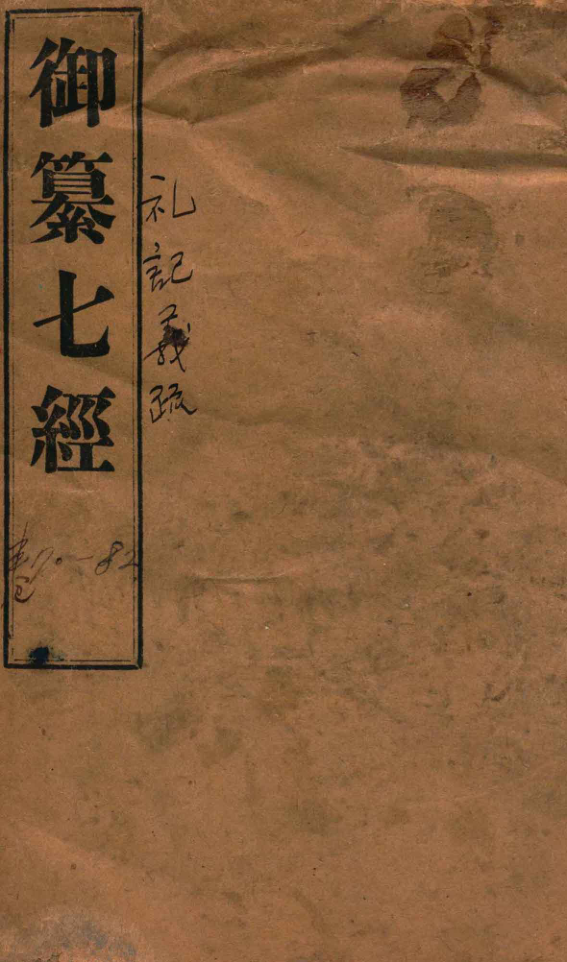 御纂七經
礼記義疏
卷70-82